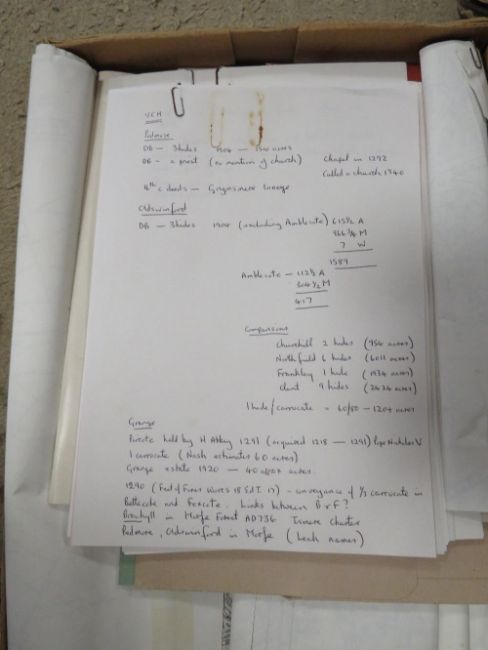 VCH
Pedmore
DB — 3 hides 1904 — 1500 acres
DB — a priest (no mention of church) Chapel in 1292
Called a church 1340
lineage
Oldswinford
DB — 3 hides 1904 (excluding Amblecote) 615½ A
966¾ M
7 W
1589
Amblecote — 112½ A
304½ M
417
Comparisons
Churchill 2 hides (956 acres)
Northfield 6 hides (6011 acres)
Frankley 1 hide (1934 acres)
Clent 9 hides (2434 acres)
1 hide/carrucate = 60/80 — 120+ acres
Grange
held by H Abbey 1291 (acquired 1218 — 1291) Pope Nicholas V
1 carrucate (Nash estimates 60 acres)
Grange estate 1920 — 40 approx acres.
1290 (Feet of Fines Worcs 18 Ed I 17) — conveyance of ⅓ carrucate in
and links between B & F?
in Morfe Forest AD736 Ismere Charter
Pedmore, Oldswinford in Morfe (Leah names)